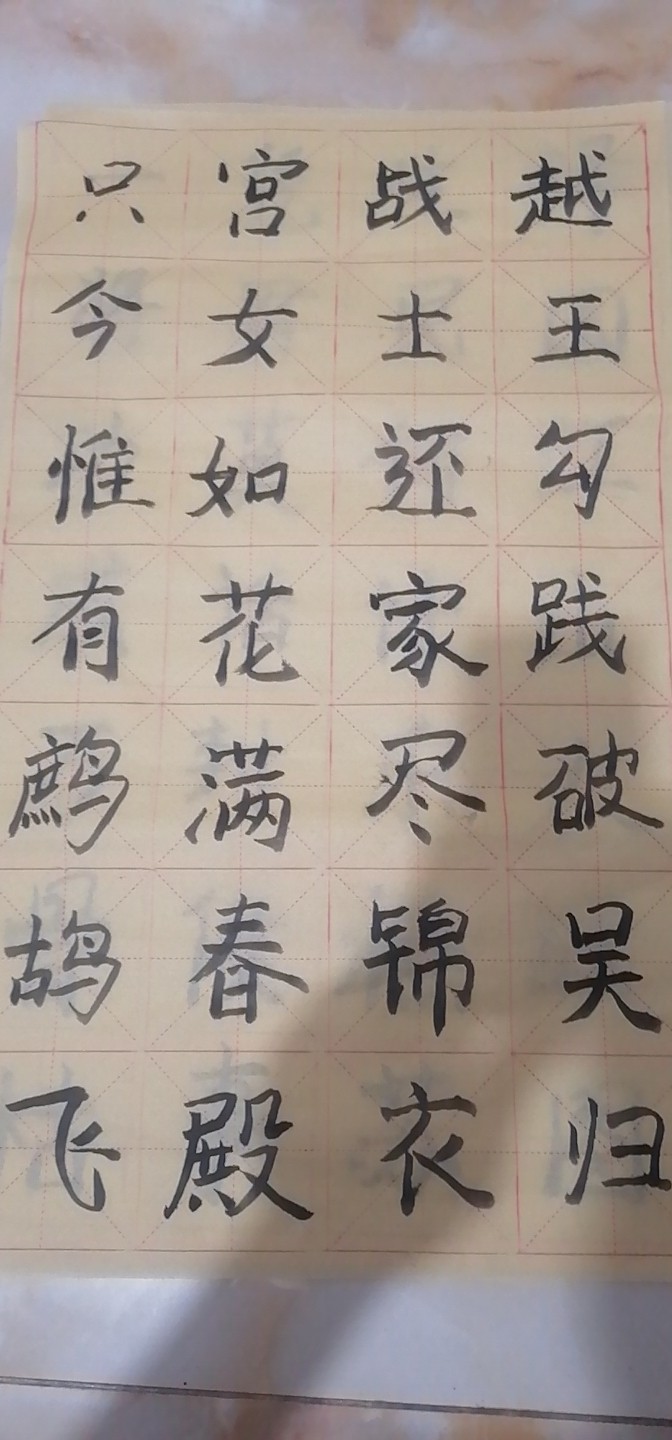 越王勾践破吴归
战士还家尽锦衣
宫女如花满春殿
只今惟有鹧鸪飞